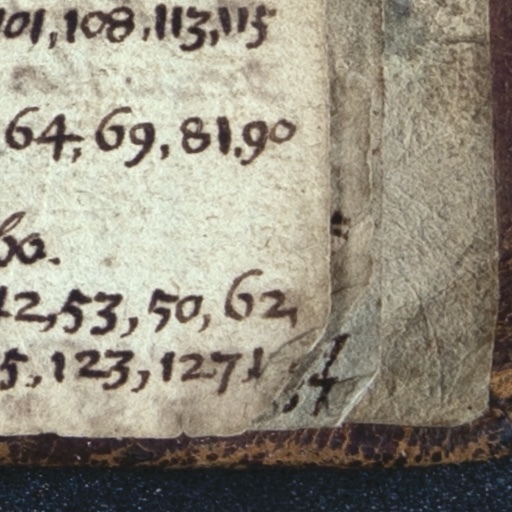 101, 108, 113, 115
64, 69, 81, 90
bo.
42, 53, 50, 62,
5, 123, 127,